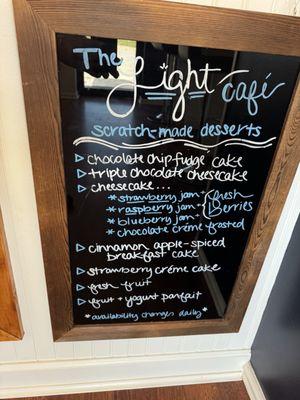 The Light café
scratch-made desserts
▷ chocolate chip fudge cake
▷ triple chocolate cheesecake
▷ cheesecake...
* strawberry jam + fresh
* raspberry jam + Berries
* blueberry jam +
* chocolate créme frosted
▷ cinnamon apple-spiced
breakfast cake
▷ strawberry créme cake
▷ fresh fruit
▷ fruit + yogurt parfait
*availability changes daily*